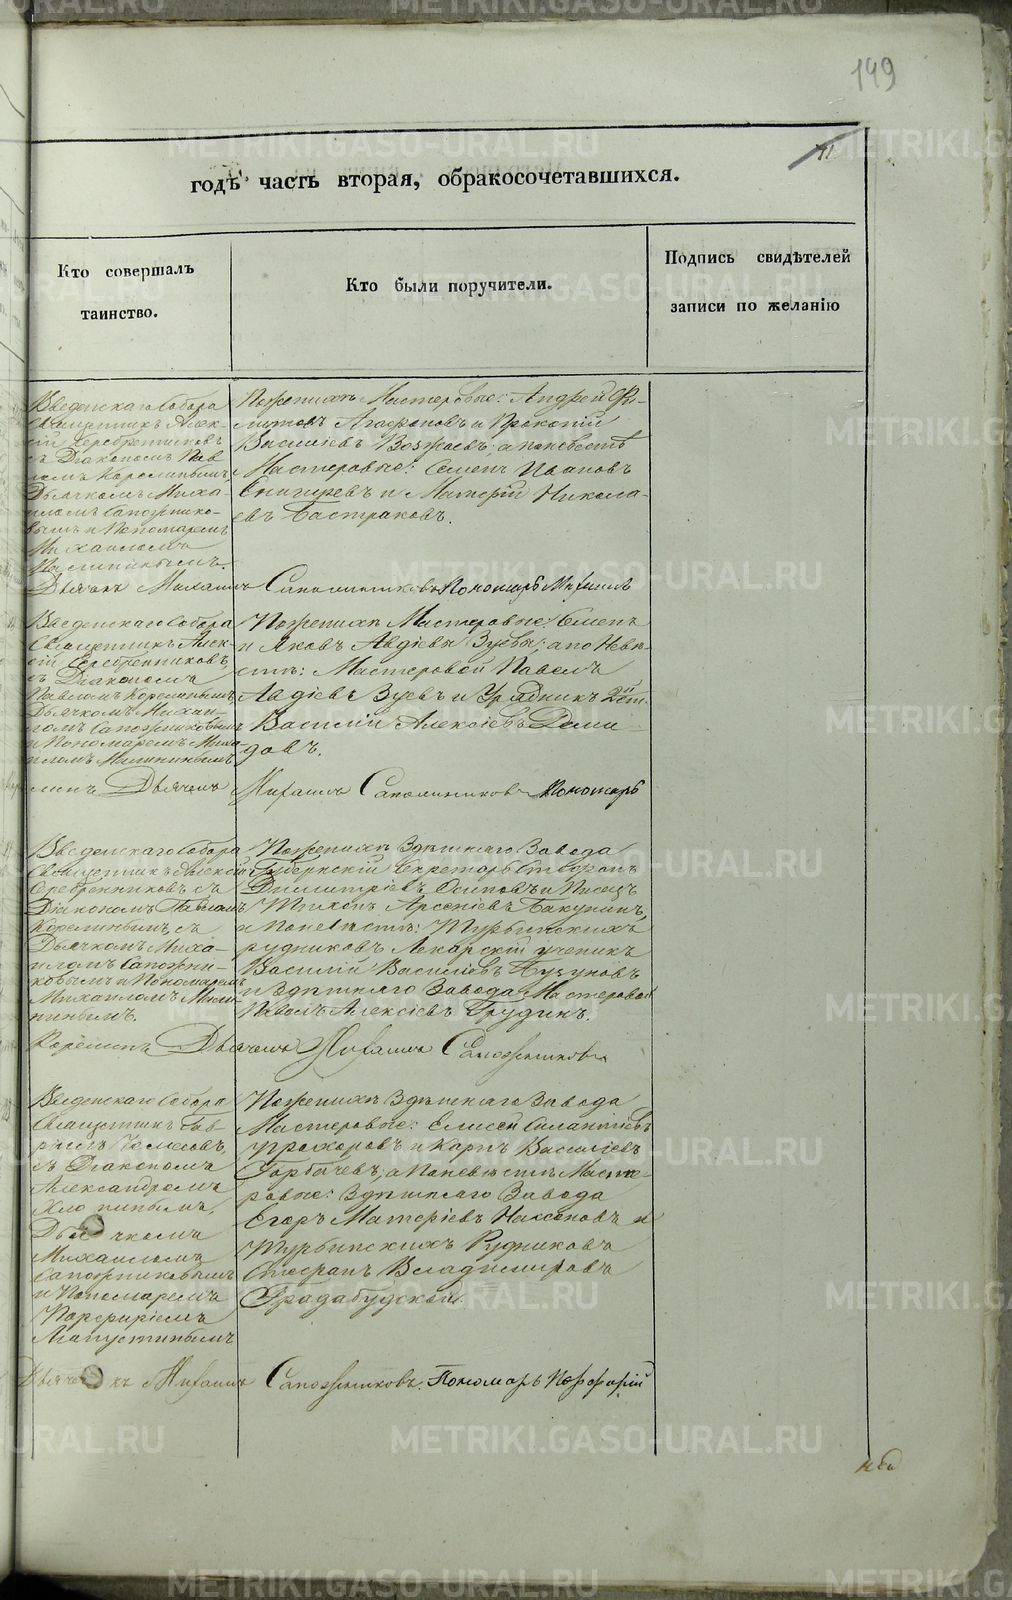 149
71
годъ часть вторая, обракосочетавшихся.
Кто совершалъ
таинство.
Кто были поручители.
Подпись свидѣтелей
записи по желанію
Введенскаго Собора
Священникъ Алек-
сій Серебренниковъ
съ Діакономъ Пав-
ломъ Корелинымъ,
Дьячкомъ Миха-
иломъ Сапожнико-
вымъ и Пономаремъ
Михаиломъ
По женихѣ Мастеровые: Андрей Фи-
литовъ Агафоновъ и Прокопій
Василіевъ Возжаевъ; а по невѣстѣ
Мастеровые: Семенъ Ивановъ
Снигиревъ и Матѳрій Никола-
евъ Бастраковъ.
Дьячекъ Михаилъ Сапожниковъ Пономарь Михаилъ
Введенскаго Собора
Священникъ Алек-
сій Серебренниковъ,
съ Діакономъ
Павломъ Корелинымъ,
Дьячкомъ Михаи-
ломъ Сапожниковымъ
и Пономаремъ Миха-
иломъ
По женихѣ Мастеровые: Семенъ
и Яковъ Авдіевы Зуевы; а по Невѣ-
стѣ: Мастеровой Павелъ
Авдіевъ Зуевъ и Урядникъ 2й ст.
Василій Алексіевъ Деми-
довъ.
Дьячекъ Михаилъ Сапожниковъ Пономарь
Введенскаго Собора
Священникъ Алексій
Серебренниковъ съ
Діакономъ Павломъ
Корелинымъ, съ
Дьячкомъ Миха-
иломъ Сапожни-
ковымъ и Пономаремъ
Михаиломъ
По женихѣ Здѣшняго Завода
Губернскій Секретарь Стефанъ
Димитріевъ Осиповъ и Писецъ
Тихонъ Арсеніевъ Бакунинъ,
а по невѣстѣ: Турьинскихъ
рудниковъ Лекарскій ученикъ
Василій Василіевъ Пузуновъ
и Здѣшняго Завода Мастеровой
Павелъ Алексіевъ Грудинъ.
Корелинъ Дьячекъ Михаилъ Сапожниковъ
Введенскаго Собора
Священникъ Гав-
ріилъ
съ Діакономъ
Александромъ
Хлопинымъ,
Дьячкомъ
Михаиломъ
Сапожниковымъ
и Пономаремъ
Порфиріемъ
Лапустинымъ
По женихѣ Здѣшняго Завода
Мастеровые: Елисей Силантіевъ
Угрохоровъ и Карпъ Василіевъ
Горбачевъ; а По невѣстѣ Масте-
ровые: Здѣшняго Завода
Егоръ Матѳріевъ Наксоновъ и
Турьинскихъ Рудниковъ
Стефанъ Владиміровъ
Градабудской.
Дьячекъ Михаилъ Сапожниковъ. Пономарь Порфирій